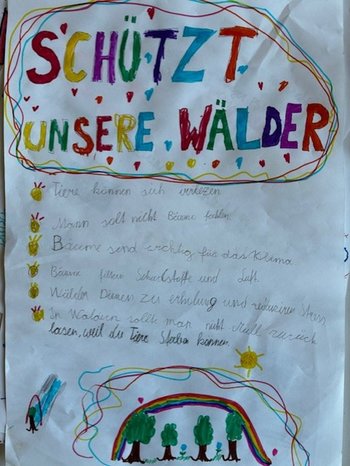 SCHÜTZT
UNSERE WÄLDER
Tiere können sich verlezen
Mann solt nicht Bäume fehlen
Bäume sind wichtig für das Klima
Bäume filtern Schadstoffe und Luft
Wälder Dienen zu erholung und reduziren Stress
In Wäldern sollte man nicht Müll zurück
lassen, weil die Tire Sterben können.